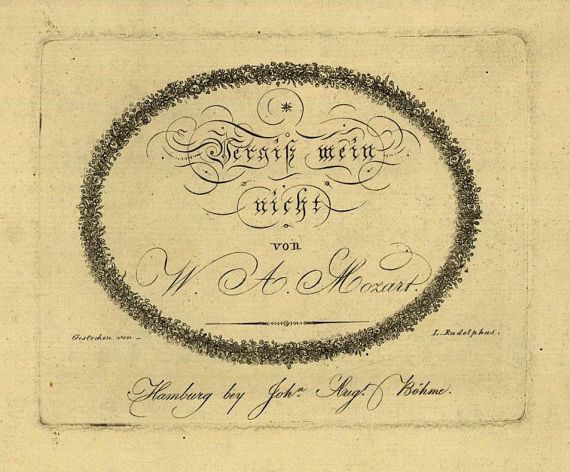 Vergiß mein
nicht
von
W. A. Mozart.
Gestochen von – L. Rudolphus.
Hamburg bey Joh.n Aug.t Böhme.